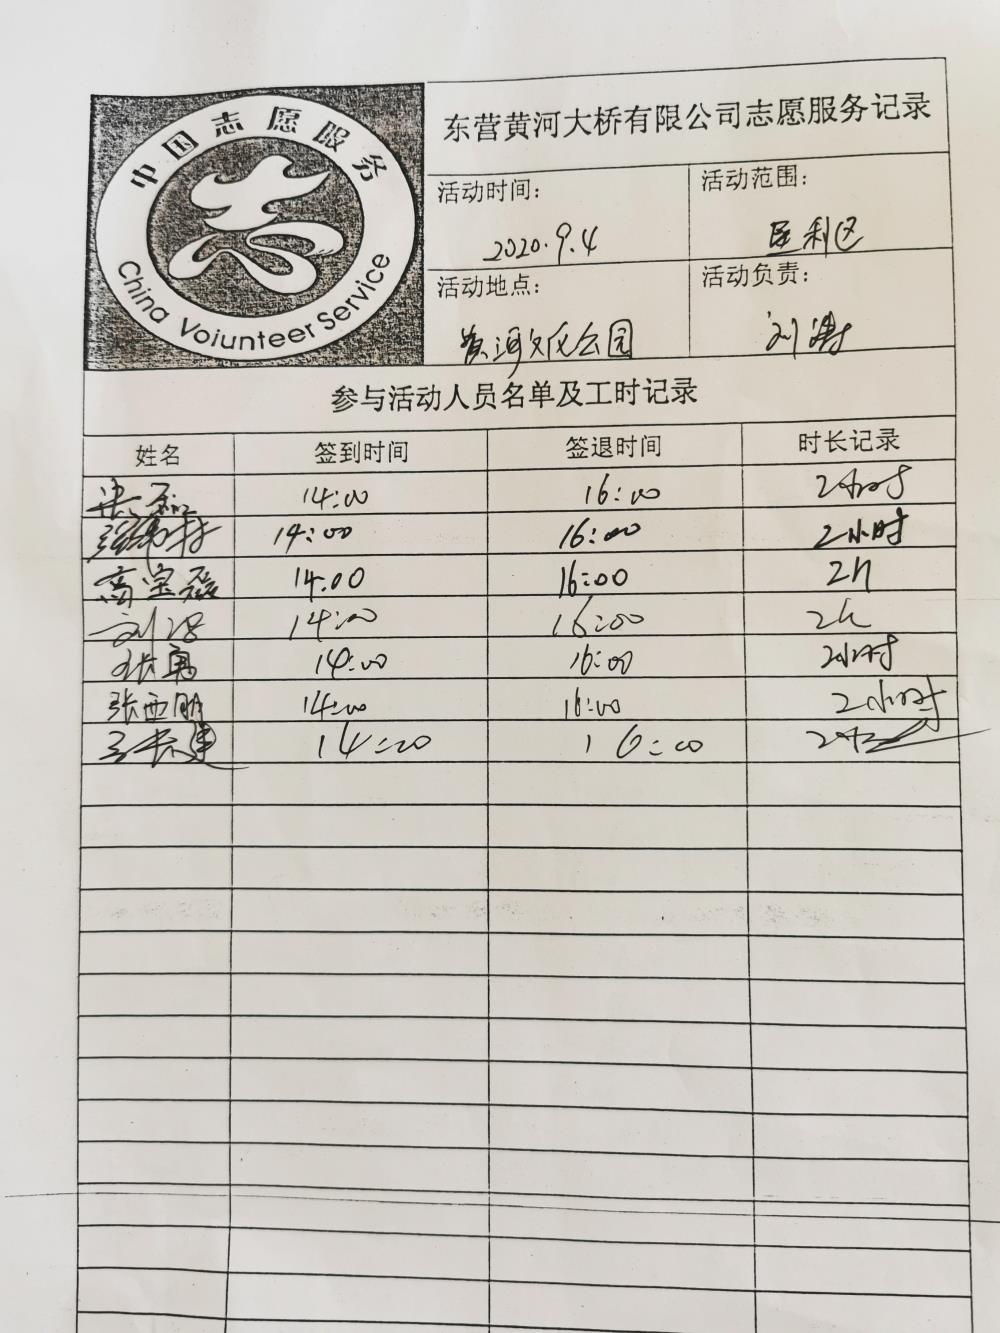 中国志愿服务
China Voiunteer Service
东营黄河大桥有限公司志愿服务记录
活动时间: 活动范围:
2020.9.4 垦利区
活动地点: 活动负责:
黄河文化公园 刘涛
参与活动人员名单及工时记录
姓名 签到时间 签退时间 时长记录
14:00 16:00 2小时
14:00 16:00 2小时
高宝 14:00 16:00 2h
刘 14:00 16:00 2h
张勇 14:00 16:00 2小时
张西朋 14:00 16:00 2小时
14:00 16:00